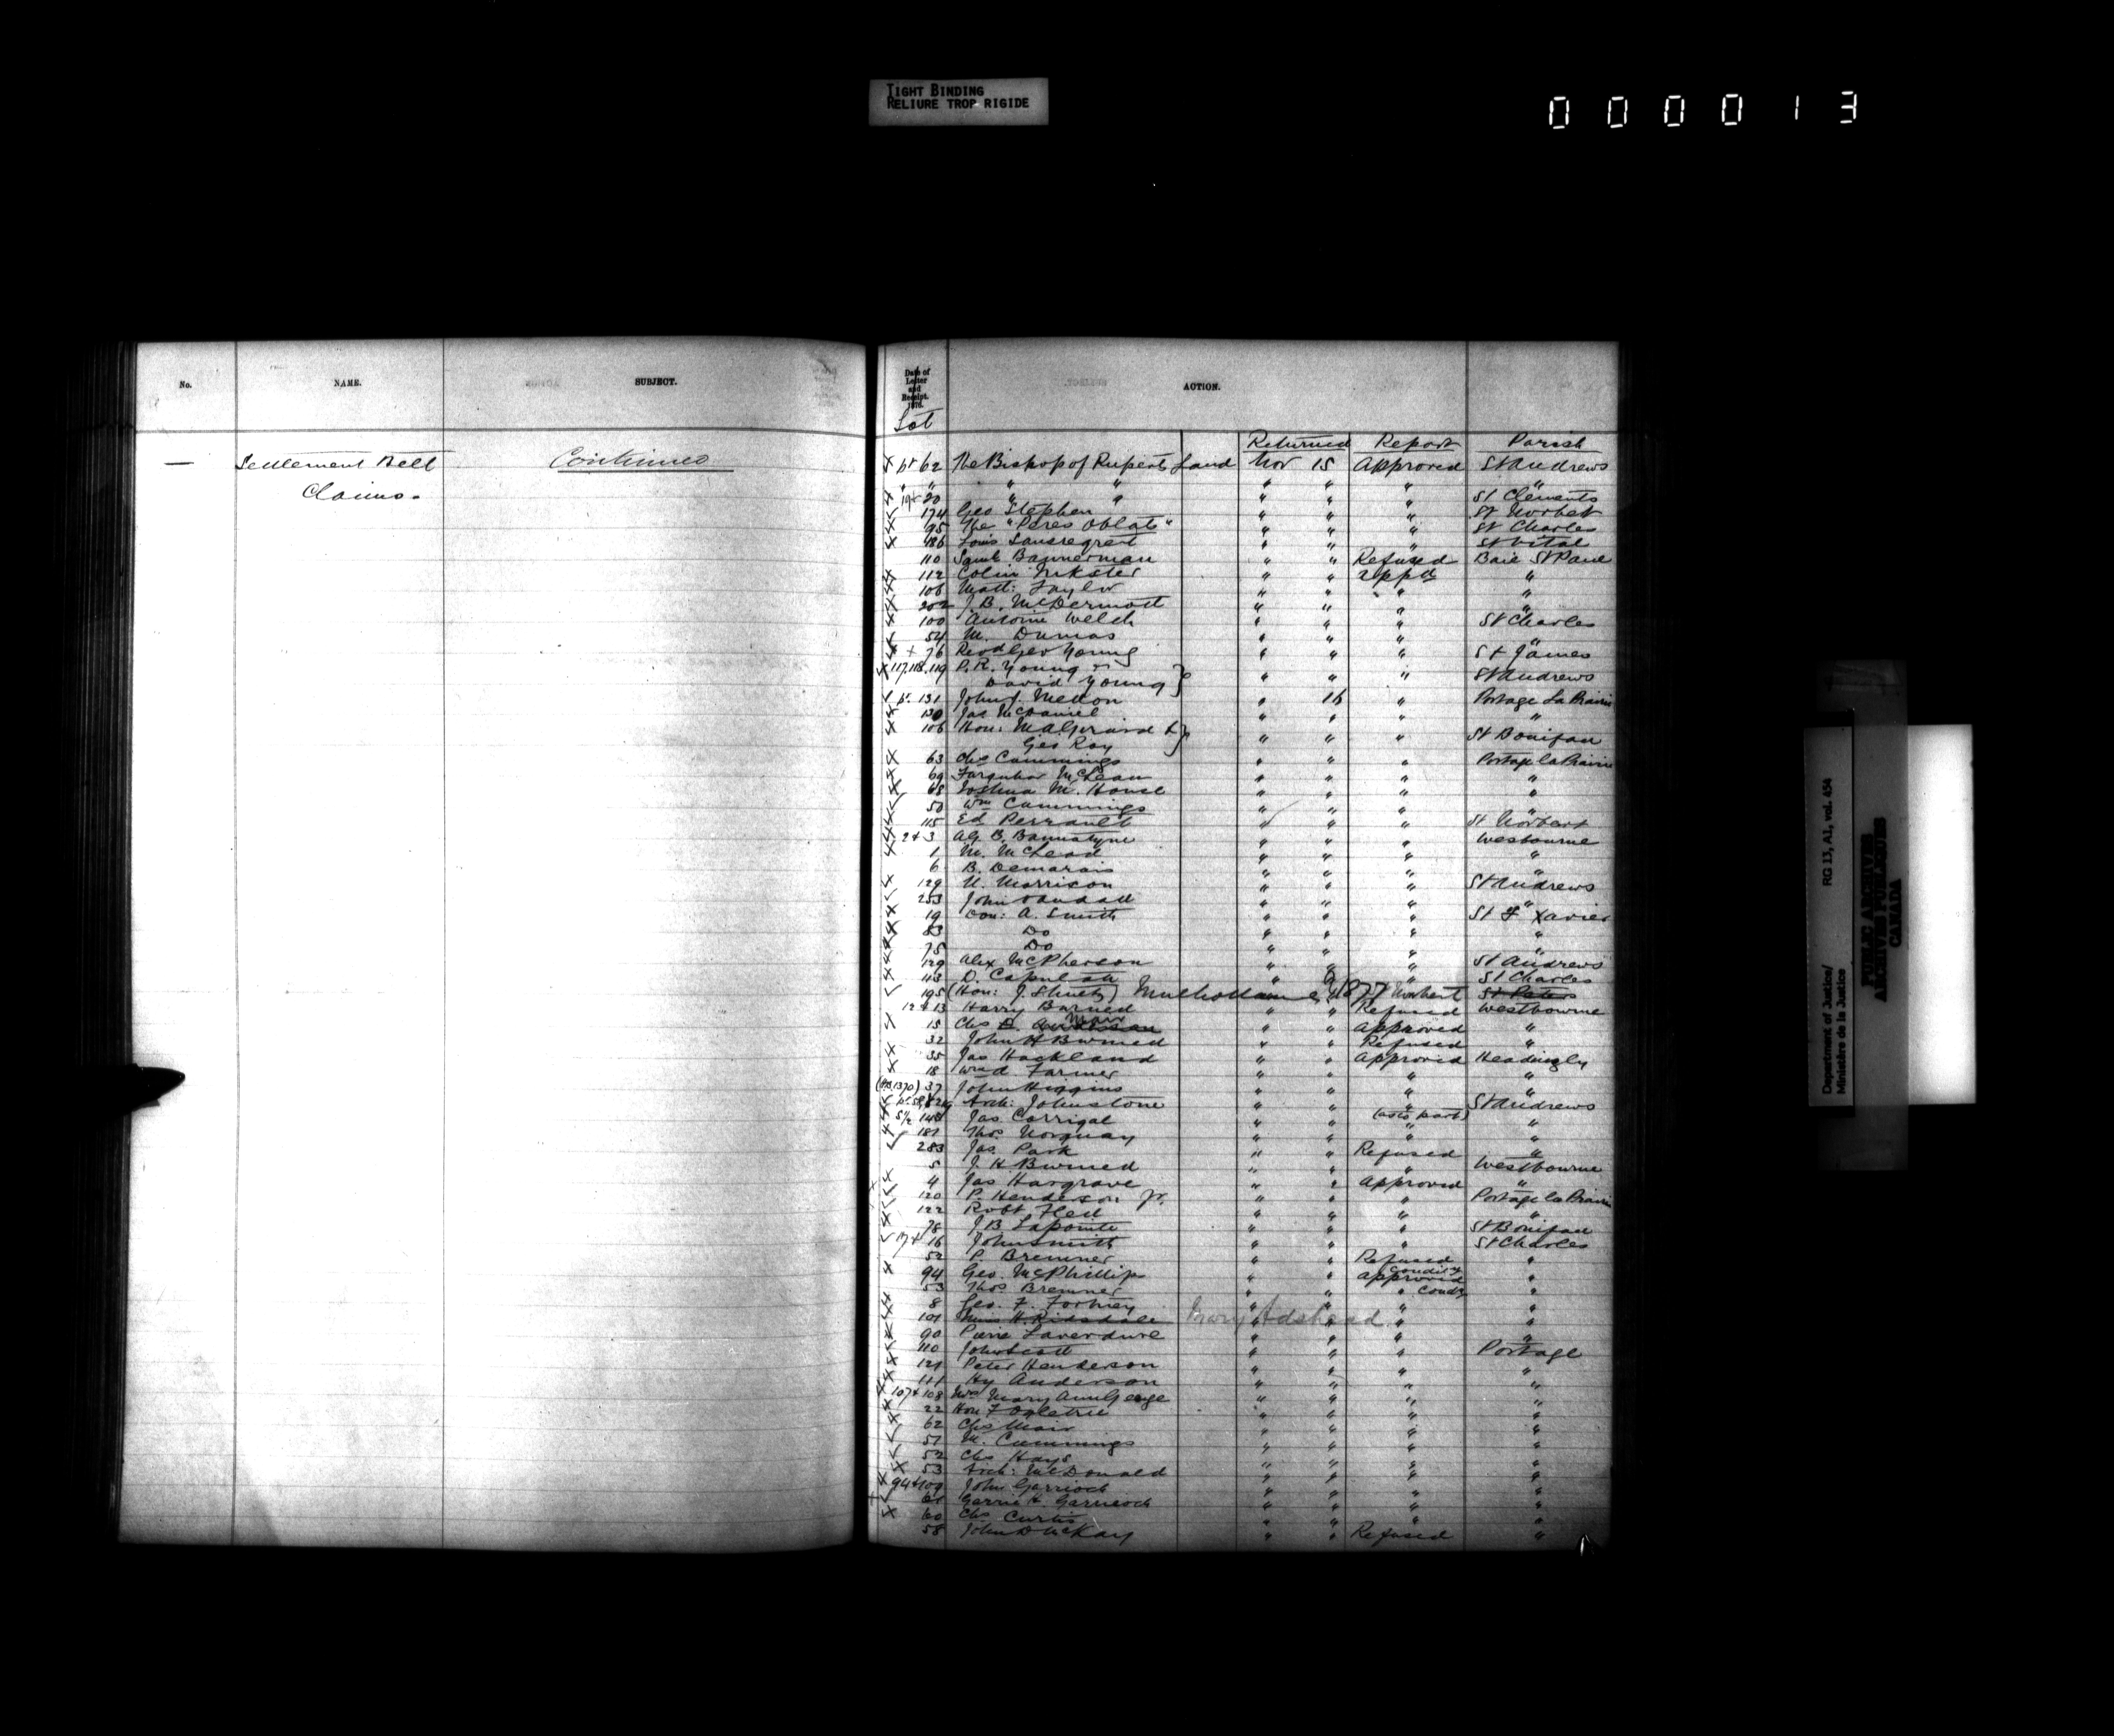 TIGHT BINDING
RELIURE TROP RIGIDE
000013
No. NAME. SUBJECT.
— Settlement Belt Continued
Claims.
Date of Letter and Receipt. 1876. ACTION.
Lot
Returned Report Parish
pt 62 The Bishop of Ruperts Land Nov 15 Approved St Andrews
" " " " " " " "
19 + 20 " " " " " St Clements
174 Geo Stephen " " " St Norbert
95 The "Peres Oblats" " " " St Charles
186 Louis Lansregret " " " St Vital
110 Bannerman " " Refused Baie St Paul
112 Colin Inkster " " appd "
108 Matt: Taylor " " " "
202 J. B. McDermott " " " "
100 Antoine Welch " " " St Charles
54 M. Dumas " " " "
+ 76 Revd Geo Young " " " St James
117.118.119 P. R. Young &
David Young } " " " St Andrews
pt 131 John J. Mellon " 16 " Portage La Prairie
130 Jas McDaniel " " " "
106 Hon: M A Girard &
Geo Roy } " " " St Boniface
63 Chs Cummings " " " Portage la Prairie
69 Farquhar McLean " " " "
68 Joshua M. House " " " "
50 Wm Cummings " " " "
115 Ed Perrault " " " St Norbert
2 + 3 A. G. B. Bannatyne " " " Westbourne
1 M. McLeod " " " "
6 B. Demarais " " " "
129 N. Morrison " " " St Andrews
253 John Vandall " " " "
19 Don: A. Smith " " " St F Xavier
83 Do " " " "
75 Do " " " "
129 Alex McPherson " " " St Andrews
113 D. Capulette " " " St Charles
195 (Hon: J. Shultz) Mulholland 1877 Norbert St Peters
12 & 13 Harry Burned " " Refused Westbourne
15 Chs Mair " " Approved "
32 John H Burned " " Refused "
35 Jas Hackland " " Approved Headingly
18 Wm A Farmer " " " "
(H.B. 1370) 37 John Higgins " " " "
Arch: Johnstone " " " St Andrews
S 1/2 148 Jas Corrigal " " (as to part) "
181 Thos Norquay " " " "
283 Jas Park " " Refused "
5 J. H Burned " " " Westbourne
4 Jas Hargrave " " Approved "
120 P. Henderson Jr. " " " Portage la Prairie
122 Robt Flett " " " "
78 J B Lapointe " " " St Boniface
17 + 16 John Smith " " " St Charles
52 P. Bremner " " Refused "
94 Geo. McPhillips " " Approved condly "
53 Thos Bremner " " " condly "
8 Geo. F. Fortney " " " "
101 Miss H. Ridsdale Mary Adshead " " " "
90 Pierre Laverdure " " " "
110 John Scott " " " Portage
121 Peter Henderson " " " "
111 Hy Anderson " " " "
107 + 108 Mrs Mary Ann George " " " "
22 Hon F Ogletree " " " "
62 Chs Mair " " " "
51 M. Cummings " " " "
52 Chs Hays " " " "
53 Arch: McDonald " " " "
94 + 109 John Garrioch " " " "
61 Garrie H. Garrioch " " " "
60 Chs Curtis " " " "
58 John D McKay " " Refused "
Department of Justice/ RG 13, A1, vol. 454
Ministère de la Justice
PUBLIC ARCHIVES
ARCHIVES PUBLIQUES
CANADA